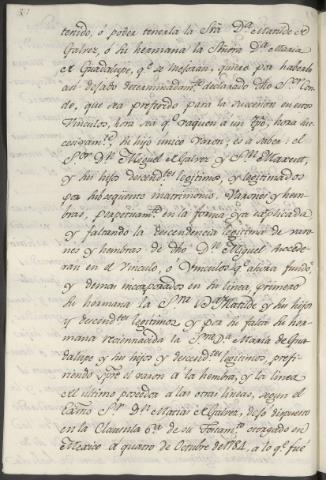 tenido, ó poder tenerla la Sra. Dª. Matilde de
Galvez, ó su hermana la Señora Dª. Maria
de Guadalupe, qe. se mejoran, quiere por haberlo
asi dejado determinadamte. declarado dho Sor. Con-
de, que sea preferido para la succesion en estos
Vinculos, ora sea qe. vaquen á un tpō, hora suc-
cesivamte., su hijo unico Varon; es á saber: el
Sor. Dn. Miguel de Galvez y Sn. Maxent,
y sus hijos descendtes. legitimos, y legitimados
por subsequente matrimonio, Varones y hem-
bras, perpetuamte. en la forma ya explicada
y faltando la descendencia legitima de varo-
nes y hembras de dho Dn. Miguel succede-
ran en el Vinculo, ó Vinculos qe. ahora fundo,
y demas incorporados en su linea, primero
su hermana la Sra. Dª. Matilde y sus hijos
y descendtes. legitimos, y por su falta su her-
mana recienacida la Sra. Dª. Maria de Gua-
dalupe y sus hijos y descendtes. legitimos, prefi-
riendo spre. el varon á la hembra, y la linea
del ultimo poseedor á las otras lineas, segun el
Exmo. Sor. Dn. Matias de Galvez, dejó dispuesto
en la Clausula 6ª. de su Testamto. otorgado en
Mexico á quatro de Octubre de 1784, á lo qe. fué